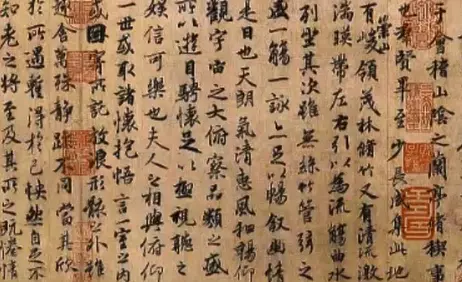 于會稽山陰之蘭亭脩稧事
也羣賢畢至少長咸集此地
有崇山峻領茂林脩竹又有清流激
湍暎帶左右引以為流觴曲水
列坐其次雖無絲竹管弦之
盛一觴一詠亦足以暢敘幽情
是日也天朗氣清惠風和暢仰
觀宇宙之大俯察品類之盛
所以遊目騁懷足以極視聽之
娛信可樂也夫人之相與俯仰
一世或取諸懷抱悟言一室之內
或因寄所託放浪形骸之外雖
趣舍萬殊靜躁不同當其欣
於所遇暫得於己怏然自足不
知老之將至及其所之既惓情